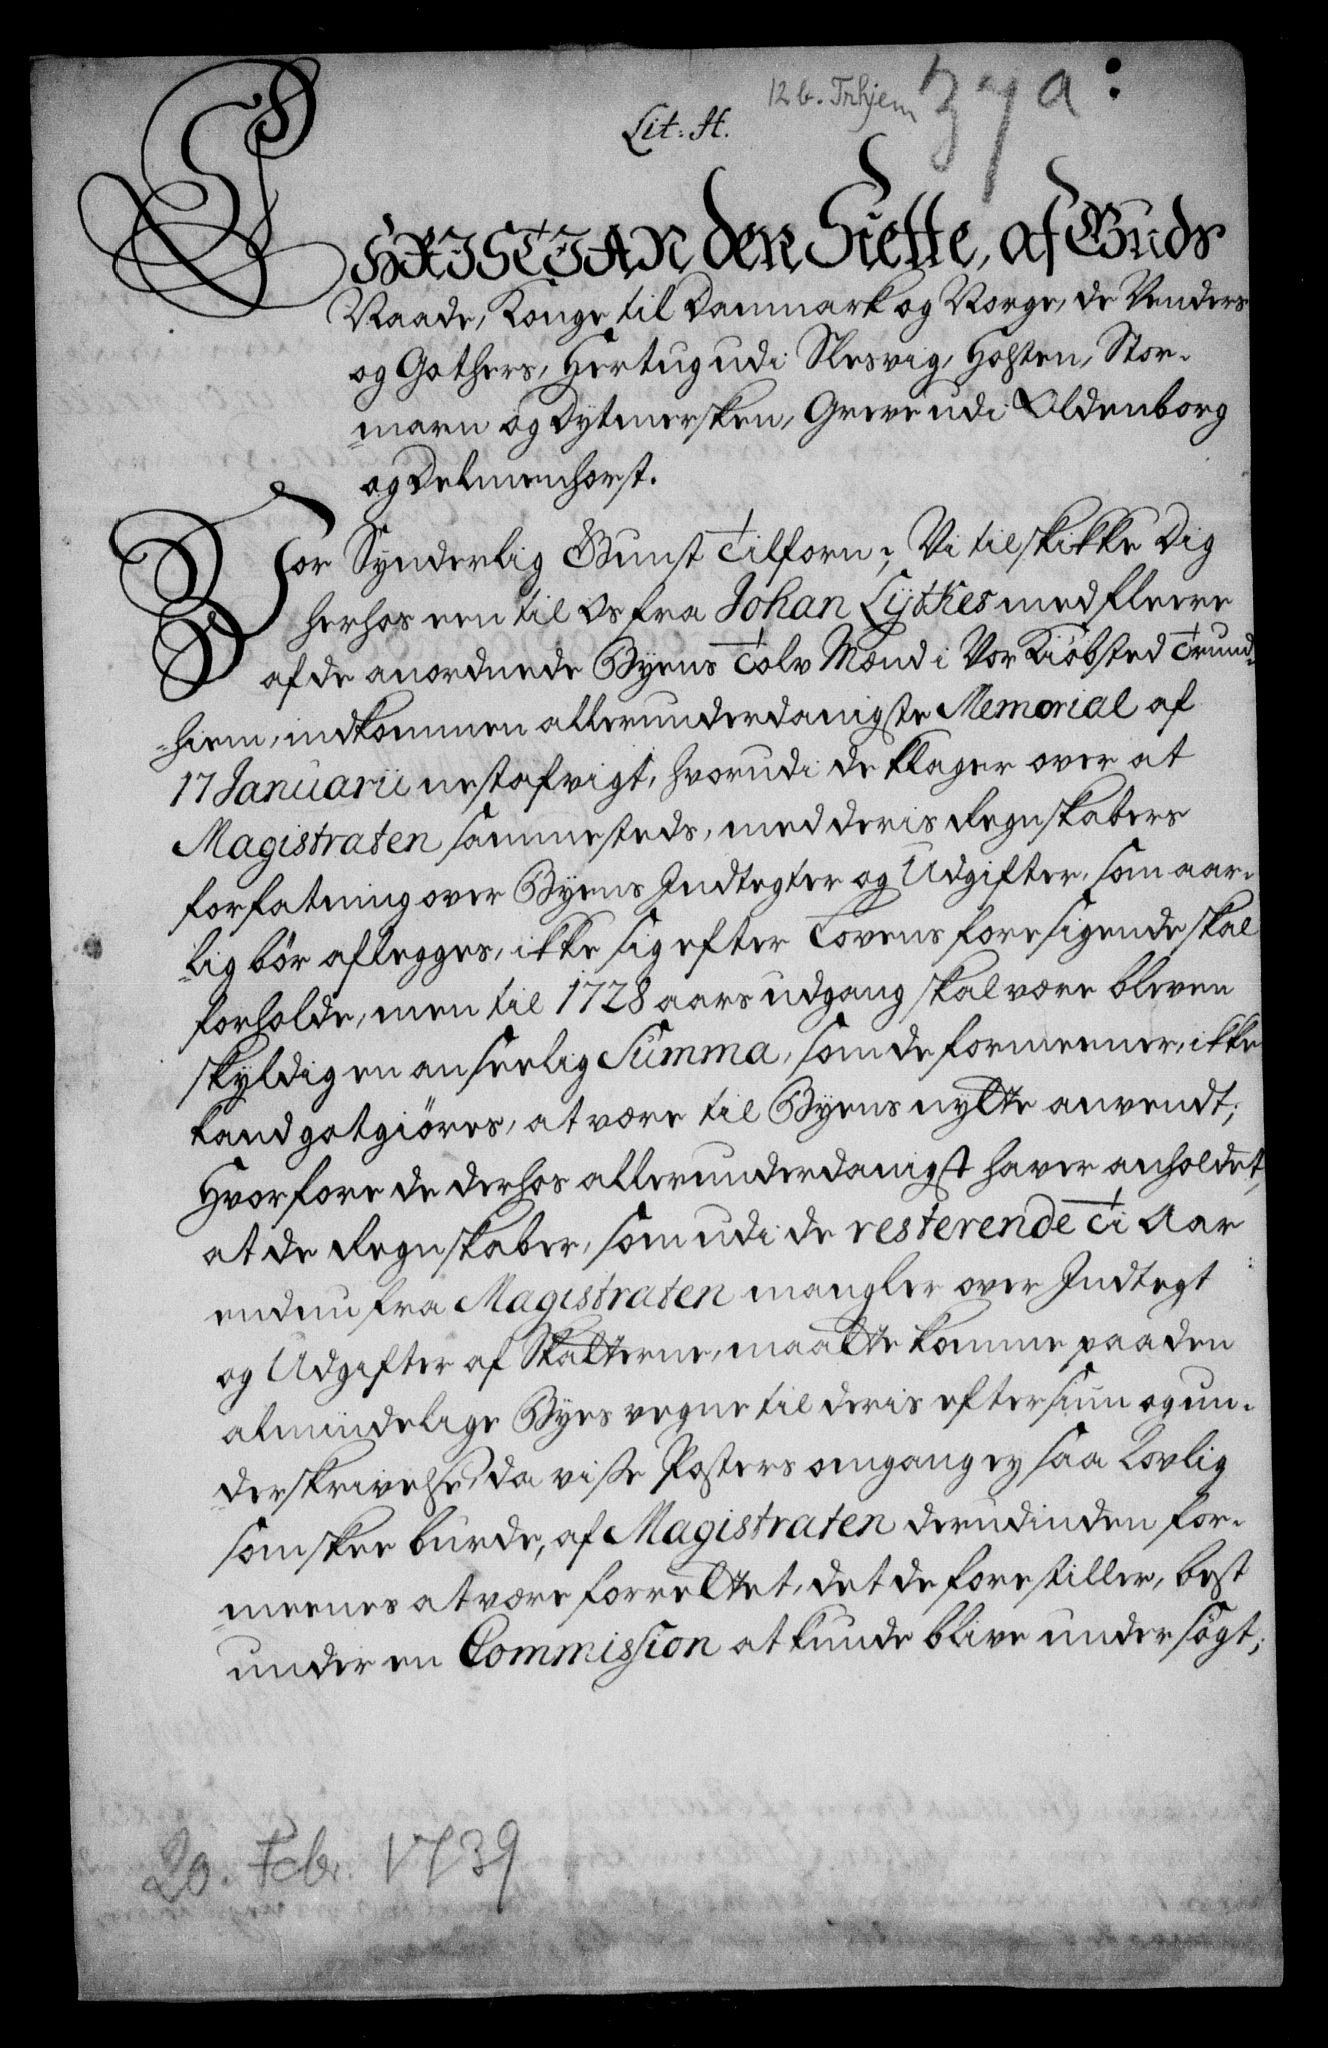 12 b. Trhjem
37 a:
Lit: H.
CHRISTIAN den Siette, af Guds
Naade, Konge til Danmark og Norge, de Venders
og Gothers, Hertug udi Slesvig, Holsten, Stor-
marn og Dytmersken, Greve udi Oldenborg
og Delmenhorst.
Vor Synderlig Gunst Tilforn; Vi tilskikke Dig
herhos een til Os fra Johan Lÿtkes med fleere
af de anordnede Byens Tolv Mænd i Vor Kiøbsted Trund-
hiem, indkommen allerunderdanigste Memorial af
17 Januarii nestafvigt, hvorudi de klager over at
Magistraten sammesteds, med deris Regnskabers
forfatning over Byens Indtegter og Udgifter, som aar-
lig bör aflegges, ikke sig efter Lovens foresigende skal
forholde, men til 1728 aars udgang skal være bleven
skyldig en anseelig Summa, som de formeener, ikke
kand gotgiöres, at være til Byens nytte anvendt;
Hvorfore de derhos allerunderdanigst haver anholdet,
at de Regnskaber, som udi de resterende Ti Aar
endnu fra Magistraten mangler over Indtegt
og Udgifter af Skatterne, maatte komme paa den
almindelige Byes vegne til deris eftersiun og un-
derskrivelse, da visse Posters omgang ey saa Lovlig
som skee burde, af Magistraten derudinden for-
meenes at være forrettet, det de forestiller, best
under en Commission at kunde blive undersögt;
20. Febr. 1739